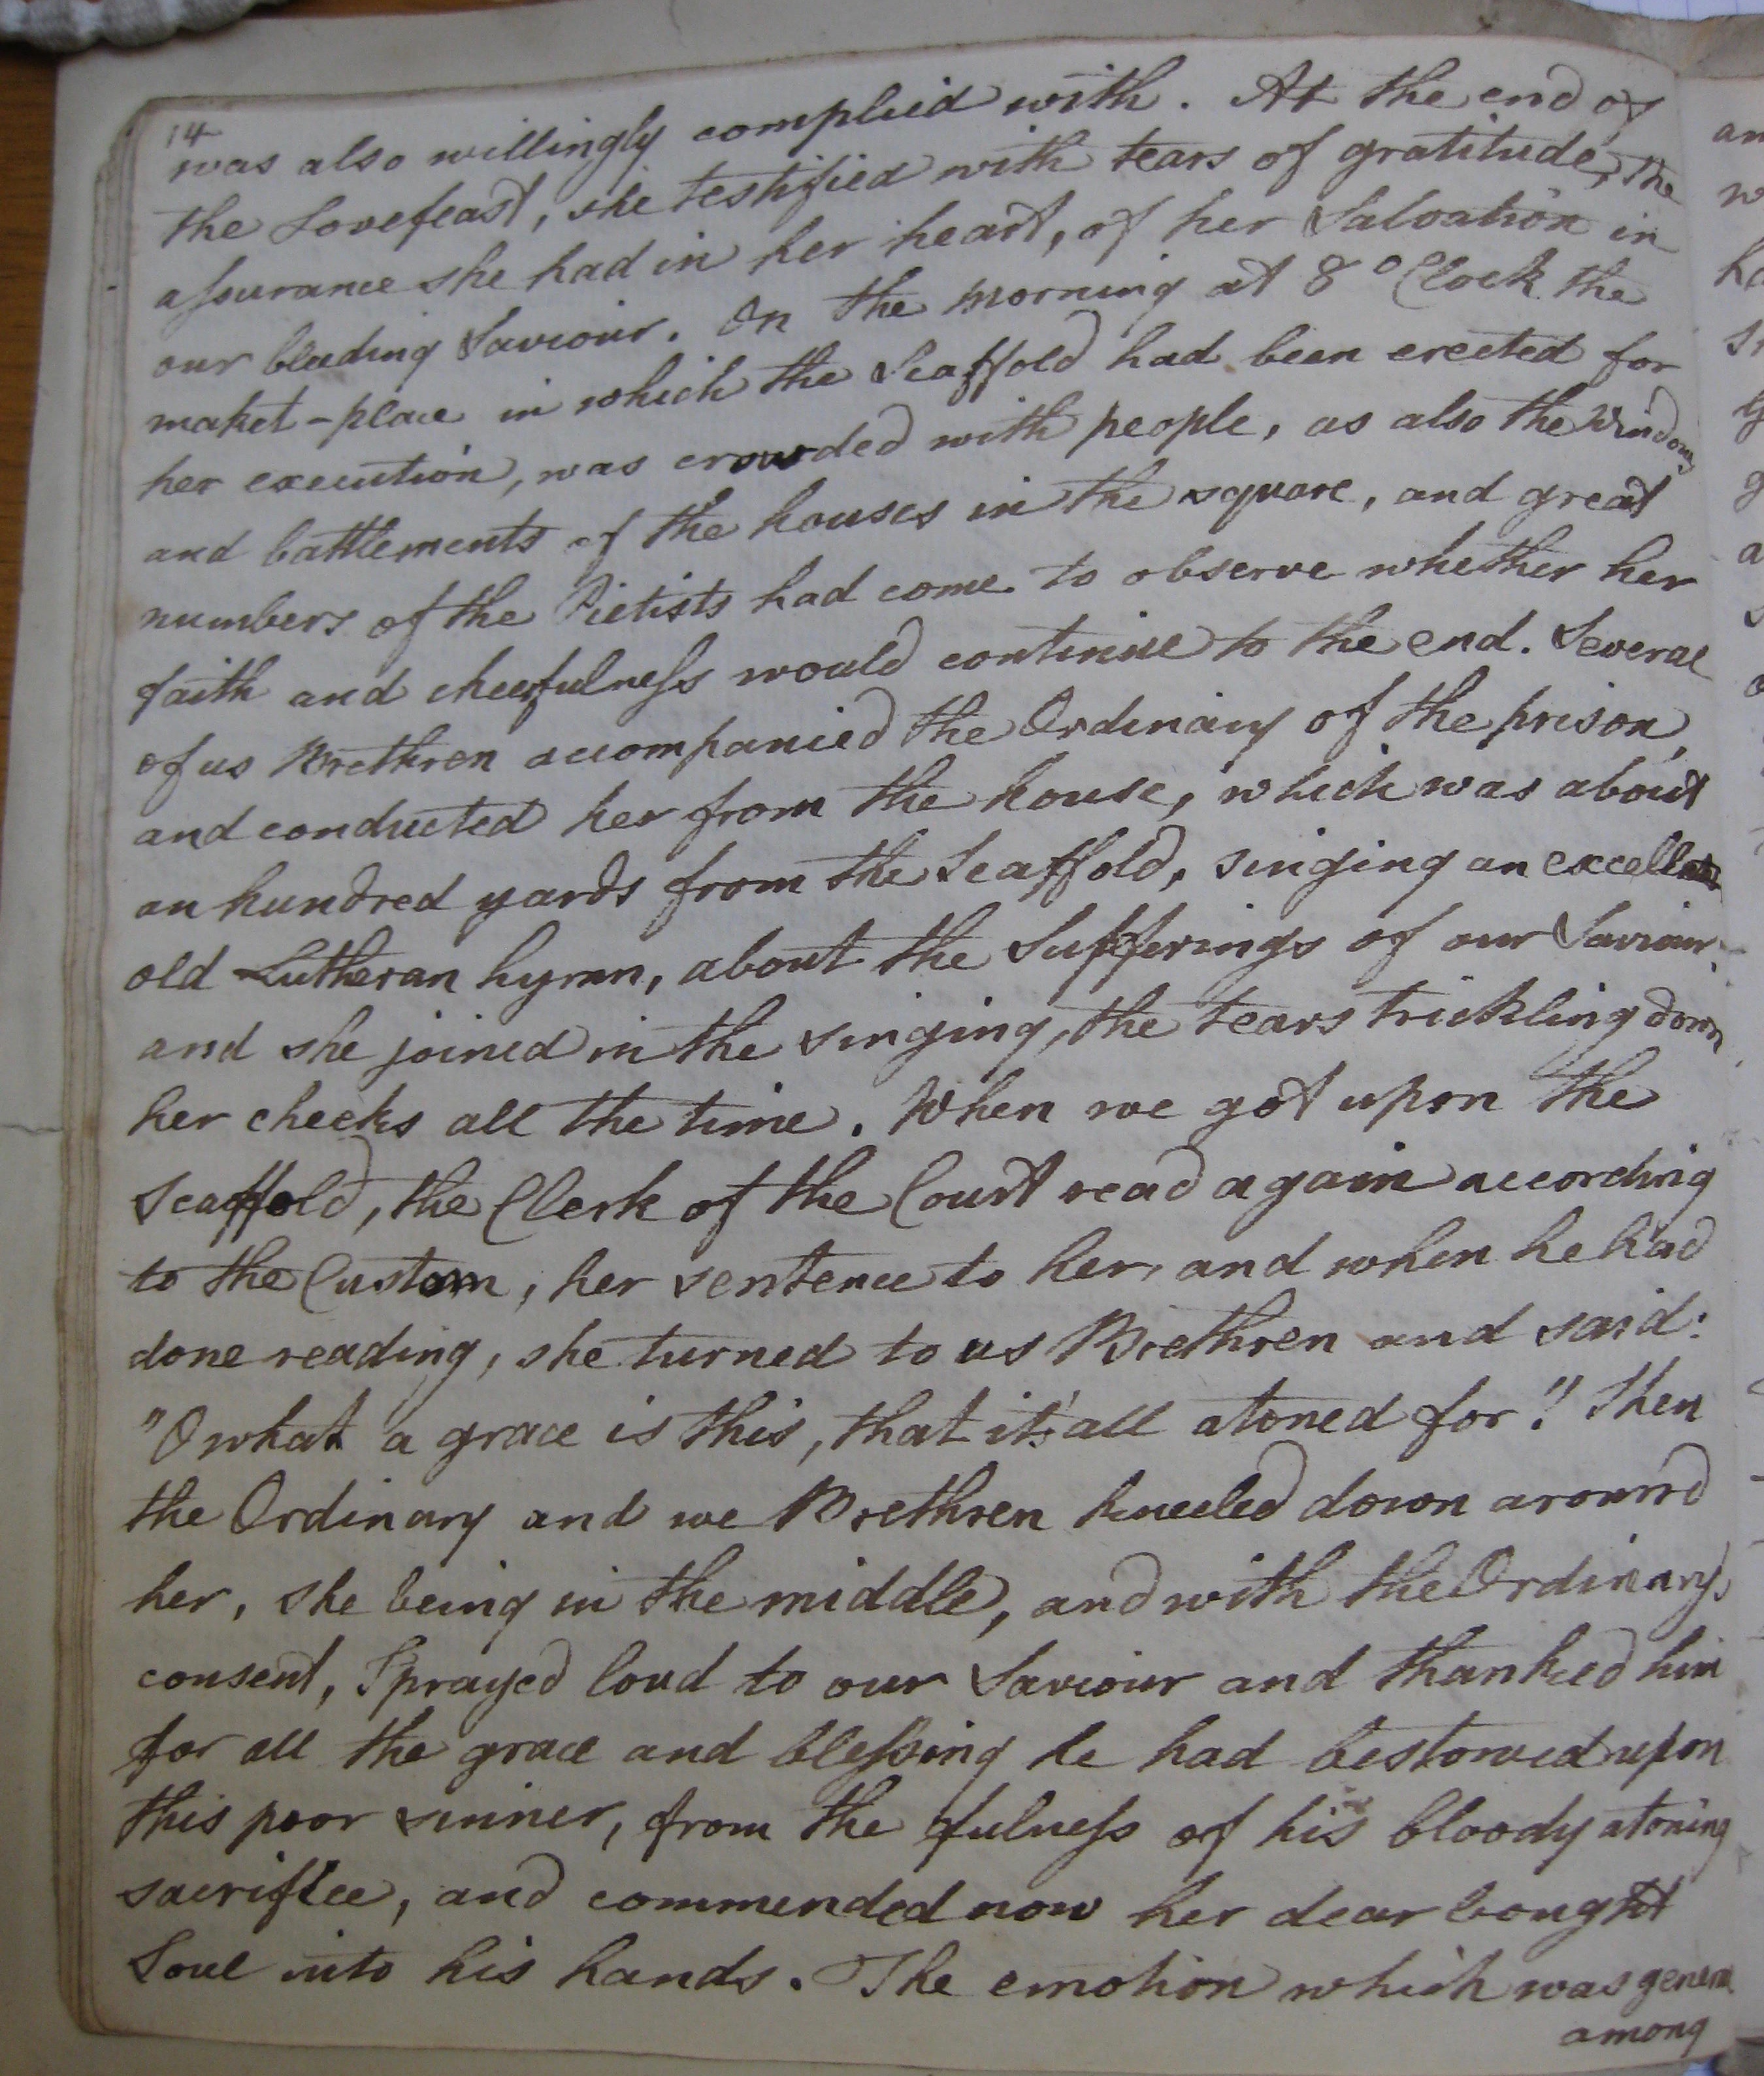 14
was also willingly complied with. At the end of
the Lovefeast, she testified with tears of gratitude, the
assurance she had in her heart, of her Salvation in
our bleeding Saviour. On the morning at 8 o Clock the
maket-place in which the Scaffold had been erected for
her execution, was crowded with people, as also the Windows
and battlements of the houses in the square, and great
numbers of the Pietists had come to observe whether her
faith and cheerfulness would continue to the end. Several
of us Brethren accompanied the Ordinary of the prison,
and conducted her from the house, which was about
an hundred yards from the Scaffold, singing an excellent
old Lutheran hymn, about the Sufferings of our Saviour,
and she joined in the singing, the tears trickling down
her cheeks all the time. When we got upon the
Scaffold, the Clerk of the Court read again according
to the Custom, her sentence to her, and when he had
done reading, she turned to us Brethren and said:
"O what a grace is this, that it's all atoned for!" Then
the Ordinary and we Brethren kneeled down around
her, she being in the middle, and with the Ordinary's
consent, I prayed loud to our Saviour and thanked him
for all the grace and blessing he had bestowed upon
this poor sinner, from the fulness of his bloody atoning
sacrifice, and commended now her dear bought
Soul into his hands. The emotion which was general
among